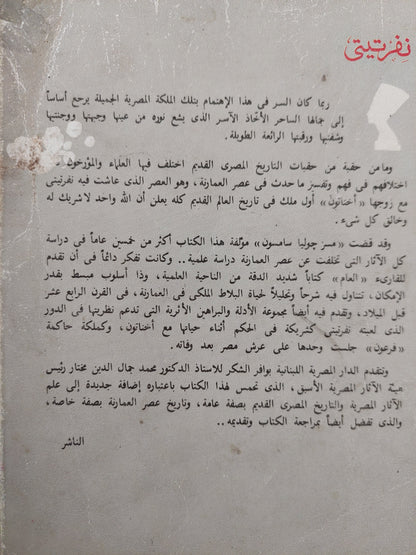 نفرتيتى
ربما كان السر فى هذا الإهتمام بتلك الملكة المصرية الجميلة يرجع أساساً
إلى جمالها الساحر الأخّاذ الآسر الذى يشع نوره من عينها وجبهتها ووجنتها
وشفتيها ورقبتها الرائعة الطويلة.
ومامن حقبة من حقبات التاريخ المصرى القديم اختلف فيها العلماء والمؤرخون
اختلافهم فى فهم وتفسير ماحدث فى عصر العمارنة، وهو العصر الذى عاشت فيه نفرتيتى
مع زوجها «أخناتون» أول ملك فى تاريخ العالم القديم كله يعلن أن الله واحد لاشريك له
وخالق كل شىء.
وقد قضت «مسز چوليا سامسون» مؤلفة هذا الكتاب أكثر من خمسين عاماً فى دراسة
كل الآثار التى تخلفت عن عصر العمارنة دراسة علمية.. وكانت تفكر دائماً فى أن تقدم
للقارىء «العام» كتاباً شديد الدقة من الناحية العلمية، وذا أسلوب مبسط بقدر
الإمكان، تتناول فيه شرحاً وتحليلاً لحياة البلاط الملكى فى العمارنة، فى القرن الرابع عشر
قبل الميلاد، وتقدم فيه أيضاً مجموعة الأدلة والبراهين الأثرية التى تدعم نظريتها فى الدور
الذى لعبته نفرتيتى كشريكة فى الحكم أثناء حياتها مع أخناتون، وكملكة حاكمة
«فرعون» جلست وحدها على عرش مصر بعد وفاته.
وتتقدم الدار المصرية اللبنانية بوافر الشكر للاستاذ الدكتور محمد جمال الدين مختار رئيس
هيئة الآثار المصرية الأسبق، الذى تحمس لهذا الكتاب باعتباره إضافة جديدة إلى علم
الآثار المصرية والتاريخ المصرى القديم بصفة عامة، وتاريخ عصر العمارنة بصفة خاصة،
والذى تفضل أيضاً بمراجعة الكتاب وتقديمه..
الناشر